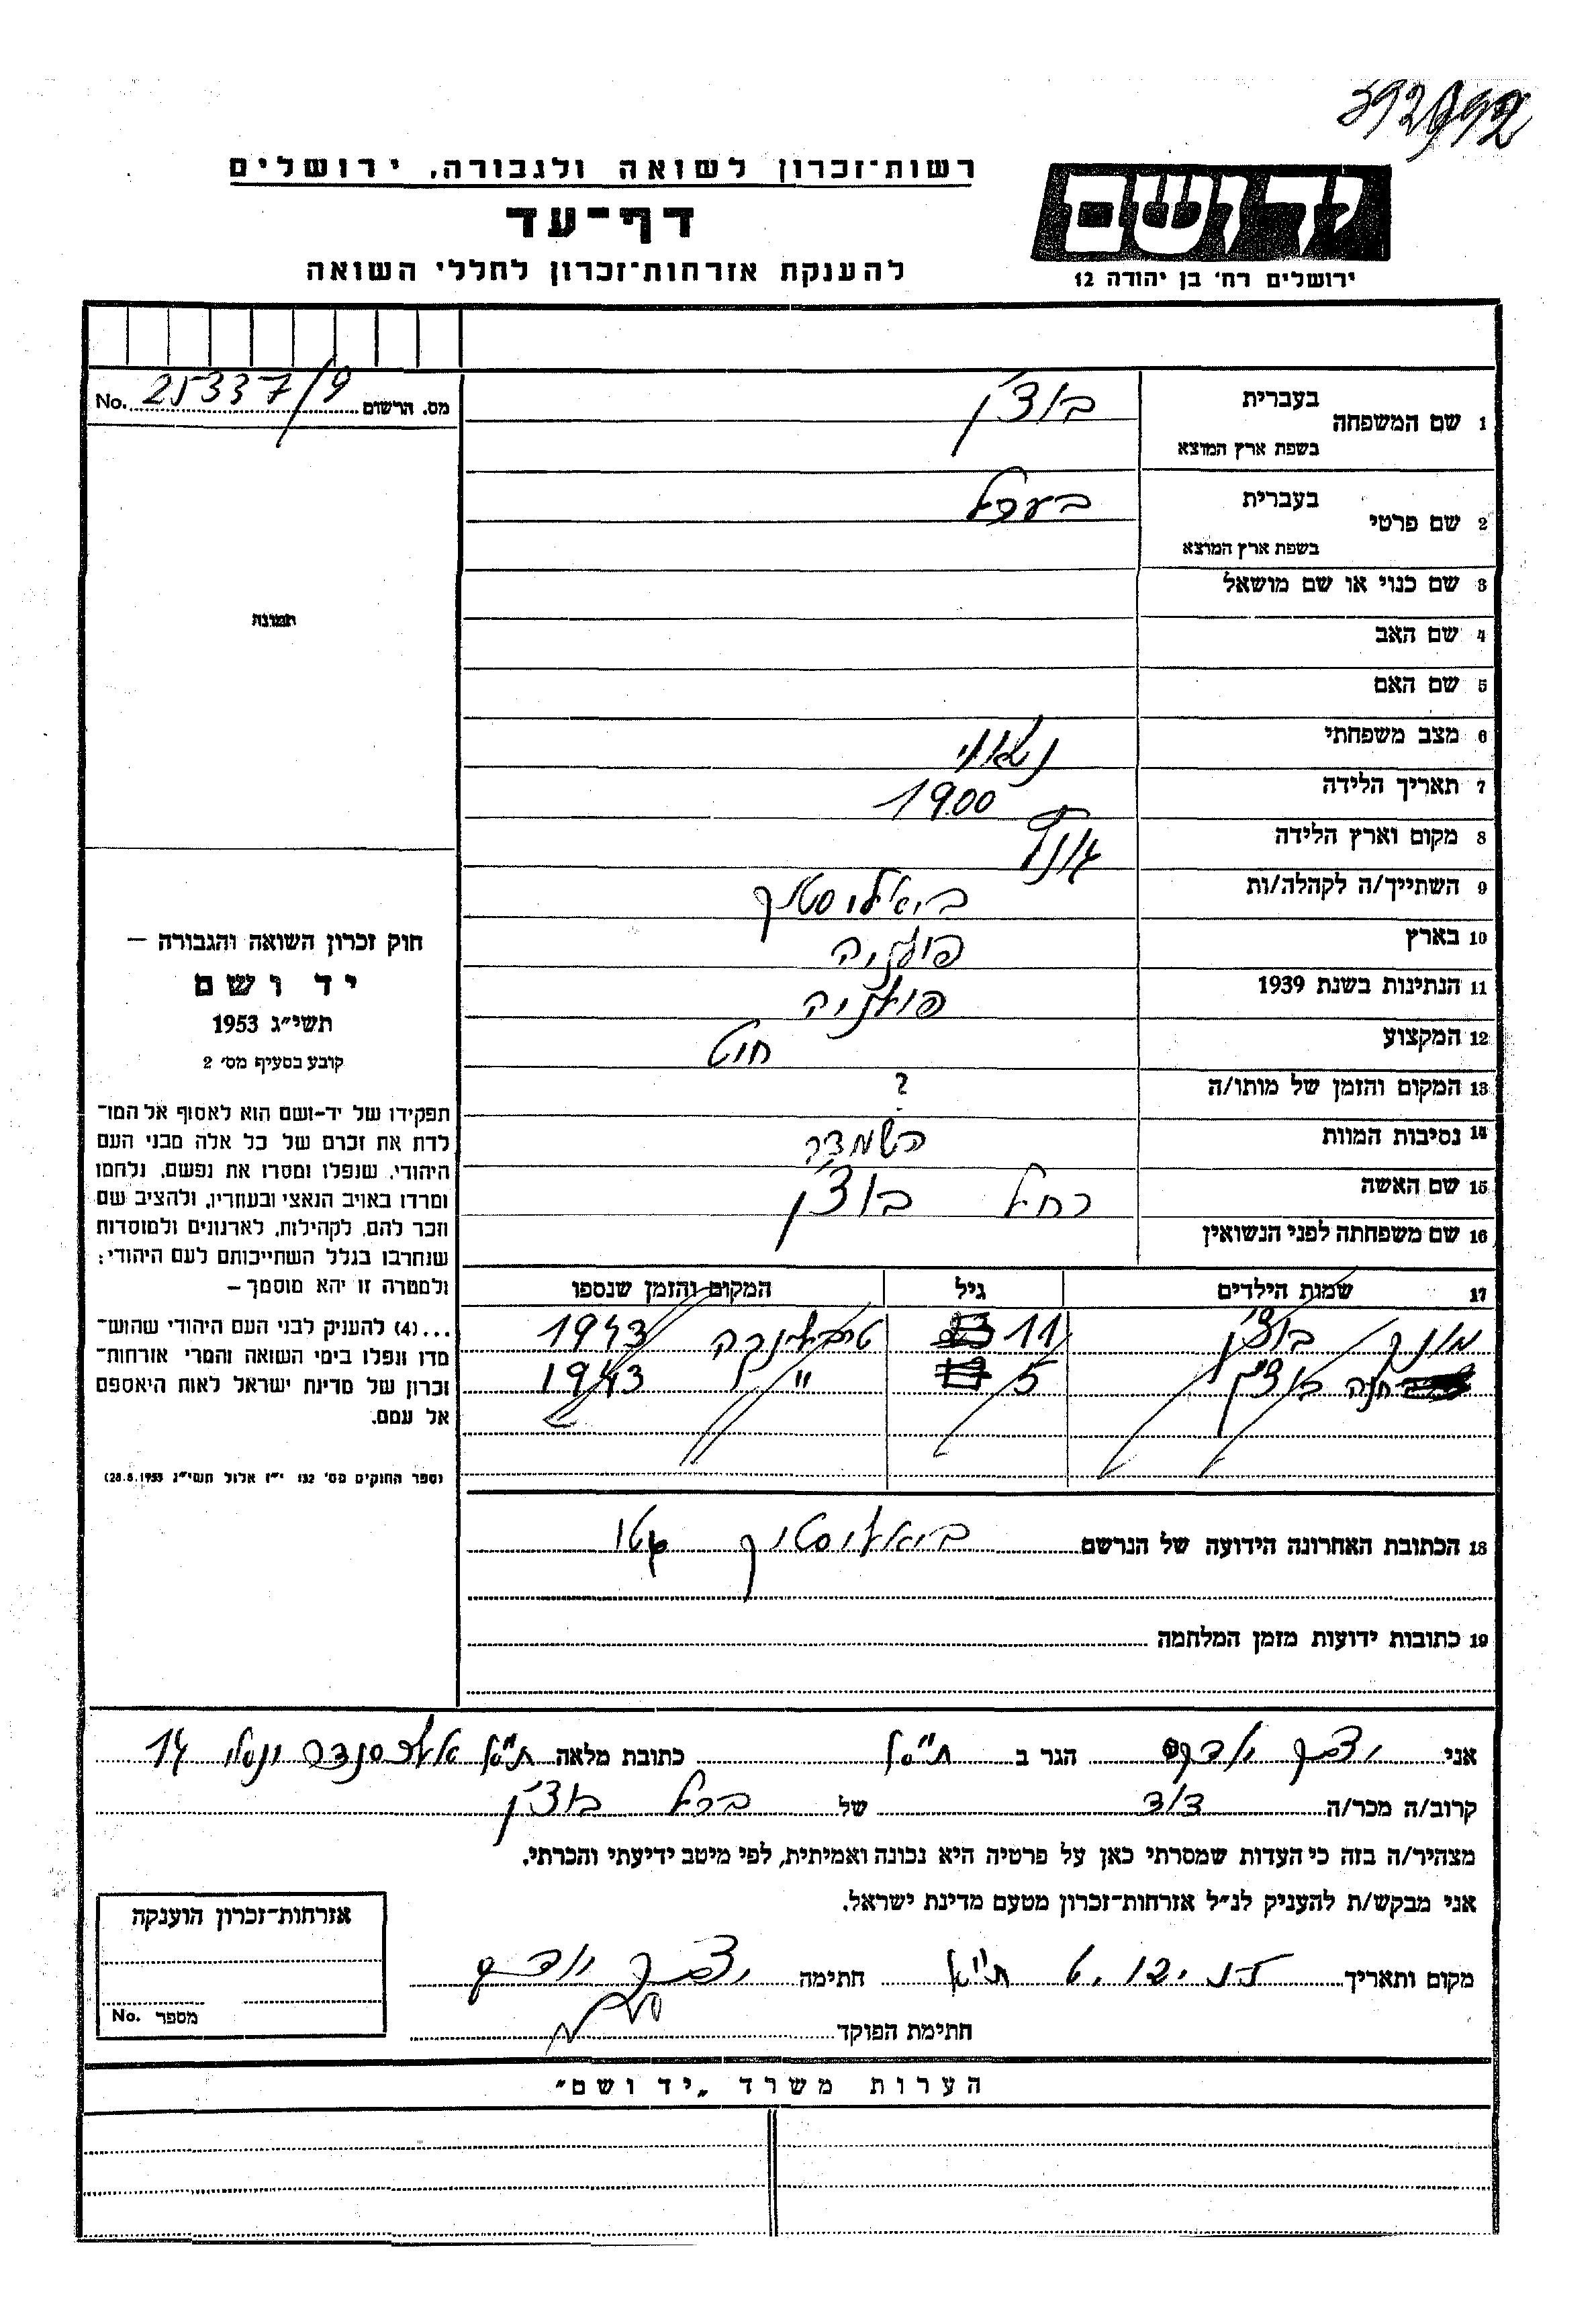 392/92
רשות־זכרון לשואה ולגבורה, ירושלים
דף־עד
להענקת אזרחות־זכרון לחללי השואה
יד ושם
ירושלים רח' בן יהודה 12
מס. הרשום 25337/9 No.
1 שם המשפחה בעברית בוצ'ן
בשפת ארץ המוצא
2 שם פרטי בעברית בערל
בשפת ארץ המוצא
3 שם כנוי או שם מושאל
4 שם האב
5 שם האם
6 מצב משפחתי נשוי
7 תאריך הלידה 1900
8 מקום וארץ הלידה
9 השתייך/ה לקהלה/ות ביאליסטוק
10 בארץ פולניה
11 הנתינות בשנת 1939 פולניה
12 המקצוע חיט
13 המקום והזמן של מותו/ה ?
14 נסיבות המוות השמדה
15 שם האשה רחל בוצ'ן
16 שם משפחתה לפני הנשואין
17 שמות הילדים גיל המקום והזמן שנספו
בוצ'ן 11 טרבלינקה 1943
חנה בוצ'ן 5 " 1943
18 הכתובת האחרונה הידועה של הנרשם ביאליסטוק גטו
19 כתובות ידועות מזמן המלחמה
תמונה
חוק זכרון השואה והגבורה –
יד ושם
תשי״ג 1953
קובע בסעיף מס׳ 2
תפקידו של יד-ושם הוא לאסוף אל המו־
לדת את זכרם של כל אלה מבני העם
היהודי, שנפלו ומסרו את נפשם, נלחמו
ומרדו באויב הנאצי ובעוזריו, ולהציב שם
וזכר להם, לקהילות, לארגונים ולמוסדות
שנחרבו בגלל השתייכותם לעם היהודי;
ולמטרה זו יהא מוסמך –
...(4) להעניק לבני העם היהודי שהוש־
מדו ונפלו בימי השואה והמרי אזרחות־
זכרון של מדינת ישראל לאות היאספם
אל עמם.
(ספר החוקים מס׳ 132 י״ז אלול תשי״ג 28.8.1953)
אני הגר ב כתובת מלאה 14
קרוב/ה מכר/ה דוד של ברל בוצ'ן
מצהיר/ה בזה כי העדות שמסרתי כאן על פרטיה היא נכונה ואמיתית, לפי מיטב ידיעתי והכרתי.
אני מבקש/ת להעניק לנ״ל אזרחות־זכרון מטעם מדינת ישראל.
מקום ותאריך חתימה
חתימת הפוקד
אזרחות־זכרון הוענקה
מספר No.
הערות משרד „יד ושם״